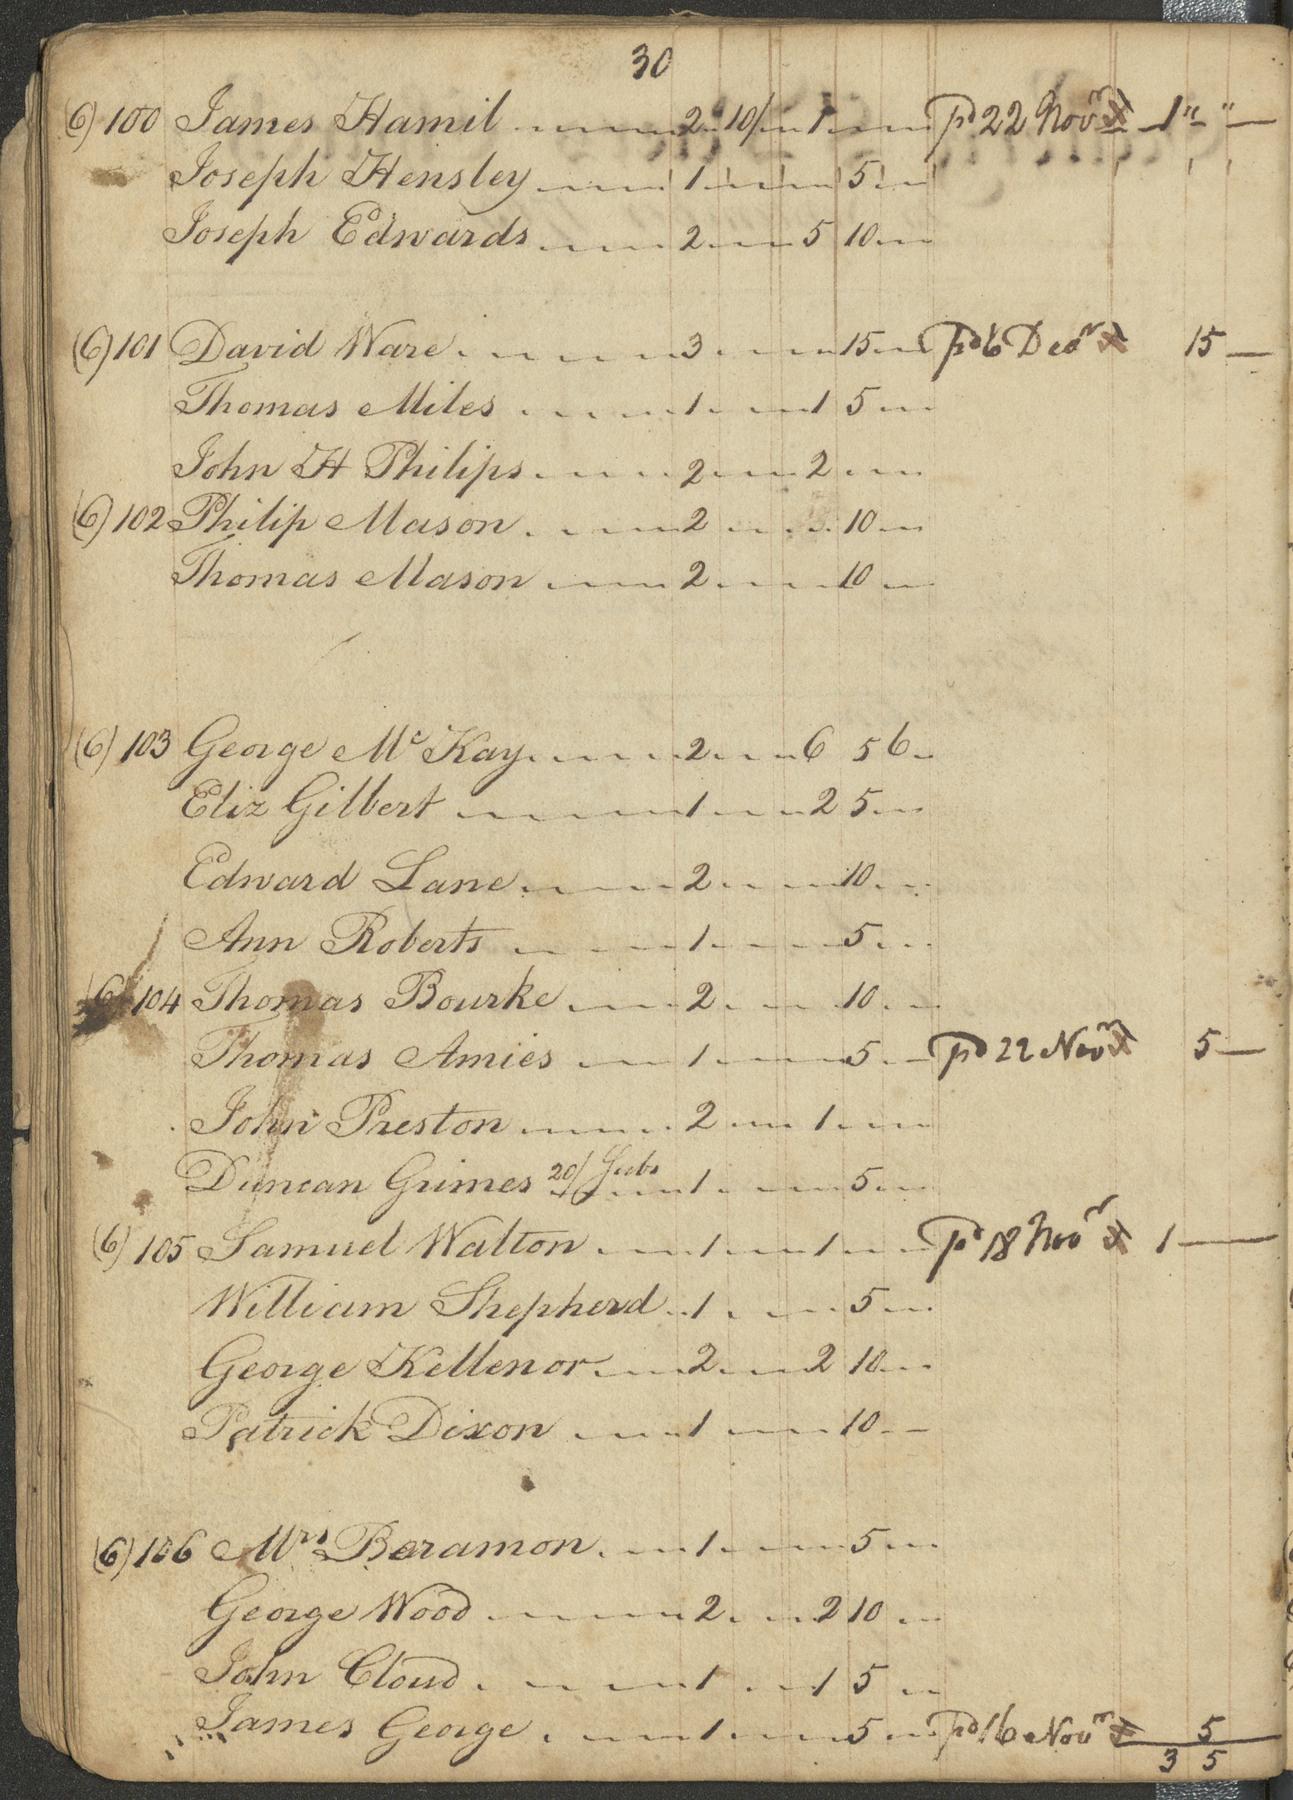 30
(6) 100 James Hamil 2 10/ 1 pd 22 Novr 1 " "
Joseph Hensley 1 5
Joseph Edwards 2 5 10
(6) 101 David Ware 3 15 pd 6 Decr 15
Thomas Miles 1 1 5
John H Philips 2 2
(6) 102 Philip Mason 2 10
Thomas Mason 2 10
(6) 103 George Mc Kay 2 6 5 6
Eliz Gilbert 1 2 5
Edward Lane 2 10
Ann Roberts 1 5
(6) 104 Thomas Bourke 2 10
Thomas Amies 1 5 pd 22 Novr 5
John Preston 2 1
Duncan Grimes 20/ 1 5
(6) 105 Samuel Walton 1 1 pd 18 Novr 1
William Shepherd 1 5
George Kellenor 2 2 10
Patrick Dixon 1 10
(6) 106 Mrs Beramon 1 5
George Wood 2 2 10
John Cloud 1 1 5
James George 1 5 pd 16 Novr 5
3 5